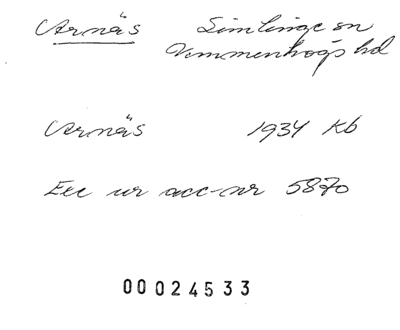 Arnäs Simlinge sn
Vemmenhögs hd
Arnäs 1934 Kb
Exc ur acc-nr 5870
00024533